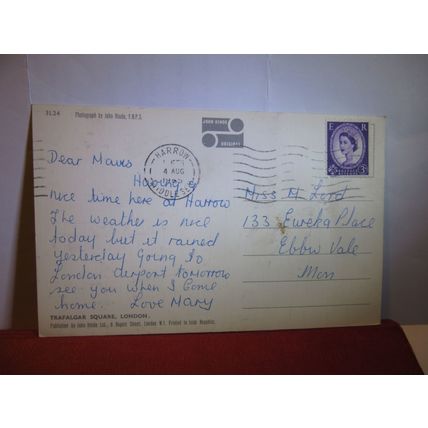 2L24
Photograph by John Hinde, F.R.P.S.
E R
3D
HARROW
4 AUG
MIDDLESEX
Dear Mavis
Having a
nice time here at Harrow
The weather is nice
today but it rained
yesterday Going to
London airport tomorrow
see you when I come
home. Love Mary
Miss M Lord
133 Eureka Place
Ebbw Vale
Mon
TRAFALGAR SQUARE, LONDON.
Published by John Hinde Ltd., 6 Rupert Street, London W.1. Printed in Irish Republic.